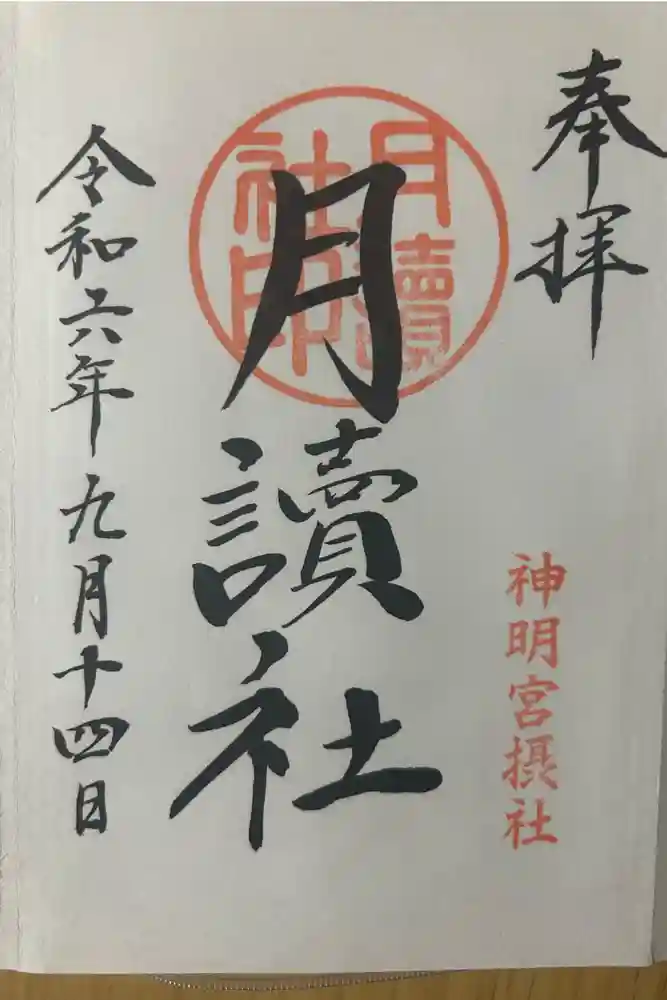 奉拝
神明宮摂社
月讀社印
月讀社
令和六年九月十四日